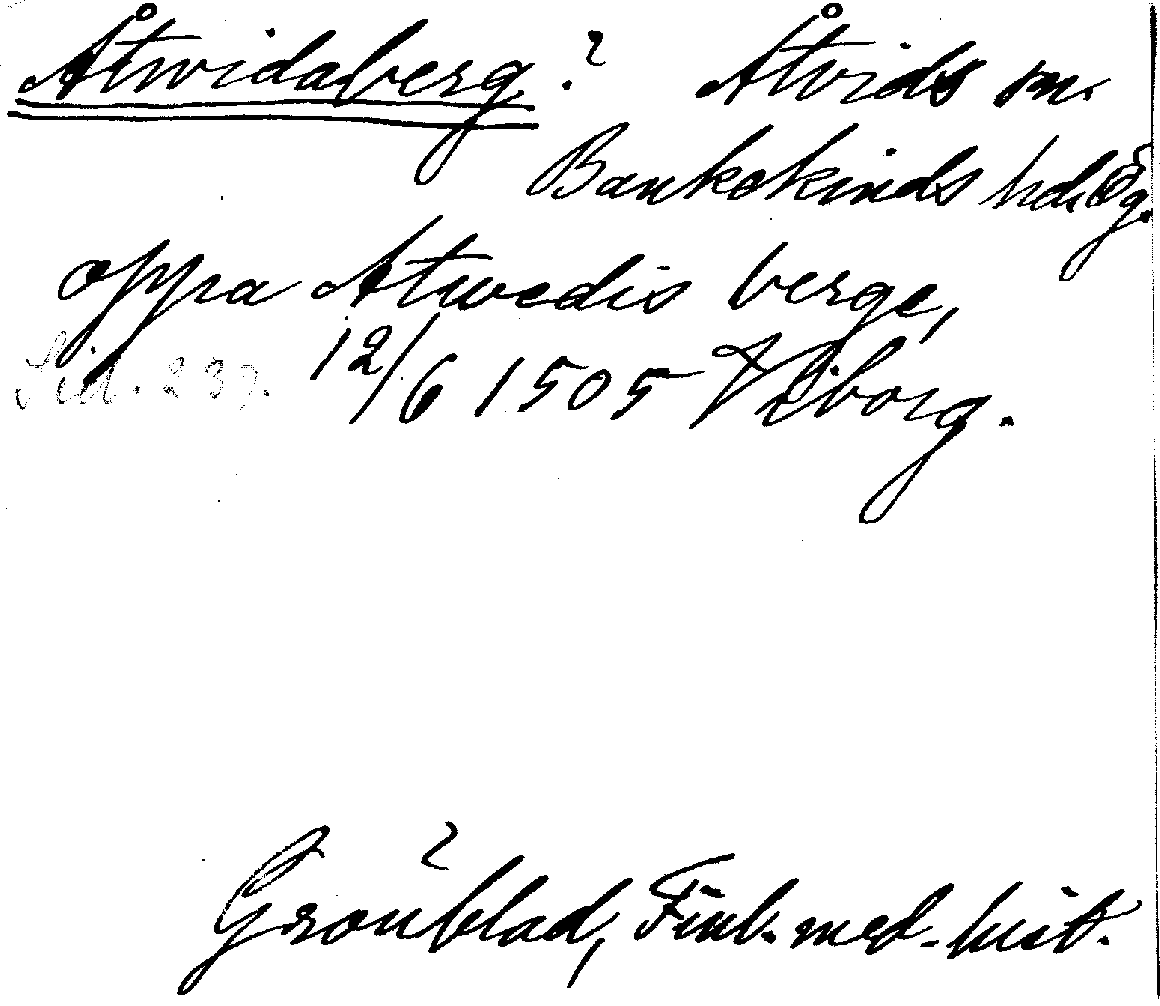 Åtwidaberg? Åtvids sn.
Bankekinds hd. Ög.
oppa Atwedis berge,
Sid. 237. 12/6 1505 Viborg.
Grönblad, Finl. med. hist.